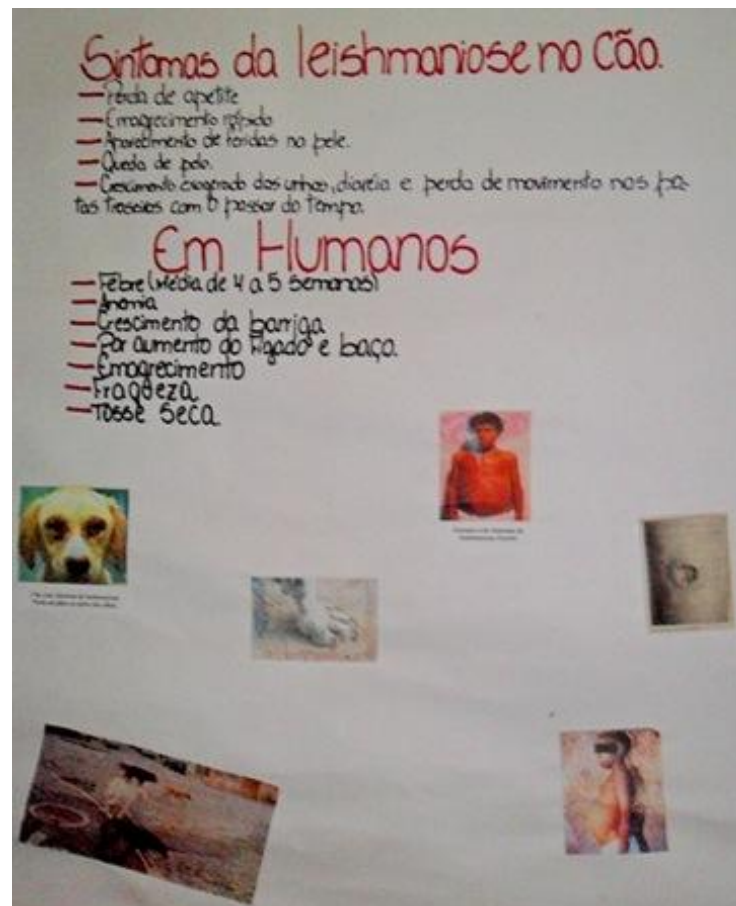 Sintomas da leishmaniose no Cão.
— Perda de apetite
— Emagrecimento rápido
— Aparecimento de feridas na pele.
— Queda de pelo.
— Crescimento exagerado das unhas, diareia e perda de movimento nas pa-
tas traseias com o passar do tempo.
Em Humanos
— Febre (Média de 4 a 5 semanas)
— Anemia
— Crescimento da barriga
— Por aumento do Fígado e baço.
— Emagrecimento
— Fraqueza
— Tosse Seca